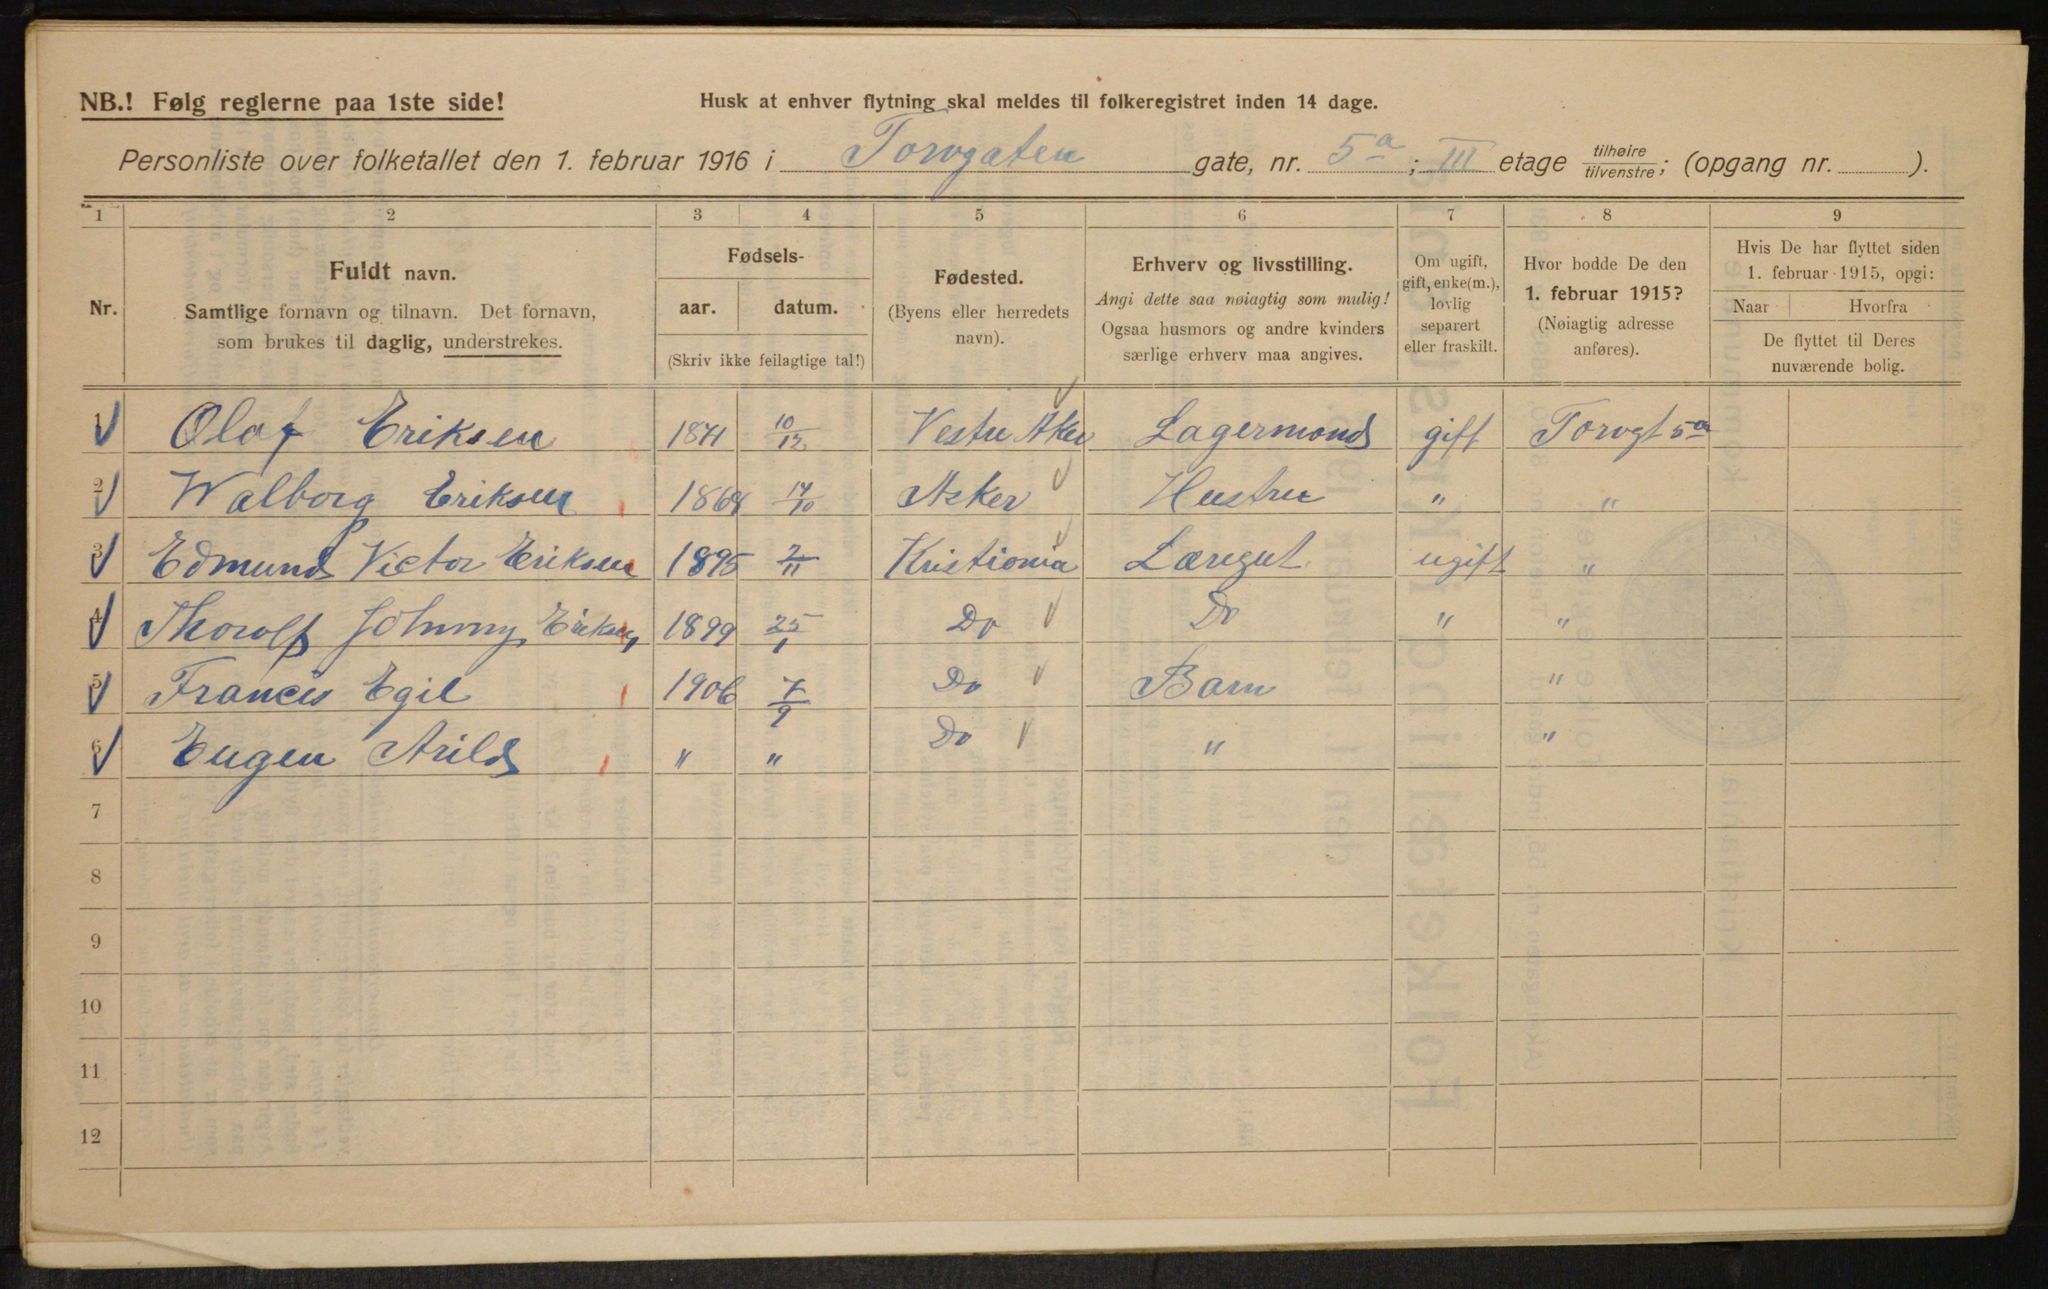 NB.! Følg reglerne paa 1ste side!
Husk at enhver flytning skal meldes til folkeregistret inden 14 dage.
Personliste over folketallet den 1. februar 1916 i Torvgaten gate, nr. 5a ; III etage tilhøire/tilvenstre; (opgang nr. ).
1 2 3 4 5 6 7 8 9
Nr.
Fuldt navn.
Samtlige fornavn og tilnavn. Det fornavn,
som brukes til daglig, understrekes.
Fødsels-
aar. datum.
(Skriv ikke feilagtige tal!)
Fødested.
(Byens eller herredets
navn).
Erhverv og livsstilling.
Angi dette saa nøiagtig som mulig!
Ogsaa husmors og andre kvinders
særlige erhverv maa angives.
Om ugift,
gift, enke(m.),
lovlig
separert
eller fraskilt.
Hvor bodde De den
1. februar 1915?
(Nøiagtig adresse
anføres).
Hvis De har flyttet siden
1. februar 1915, opgi:
Naar Hvorfra
De flyttet til Deres
nuværende bolig.
1 Olaf Eriksen 1871 10/12 Vestre Aker Lagermand gift Torvgt 5a
2 Walborg Eriksen 1868 17/10 Asker Hustru " "
3 Edmund Victor Eriksen 1895 2/11 Kristiania Læregut ugift "
4 Thorolf Johnny Eriksen 1899 25/1 Do Do " "
5 Francis Egil 1906 7/9 Do Barn "
6 Eugen Arild " " Do " "
7
8
9
10
11
12